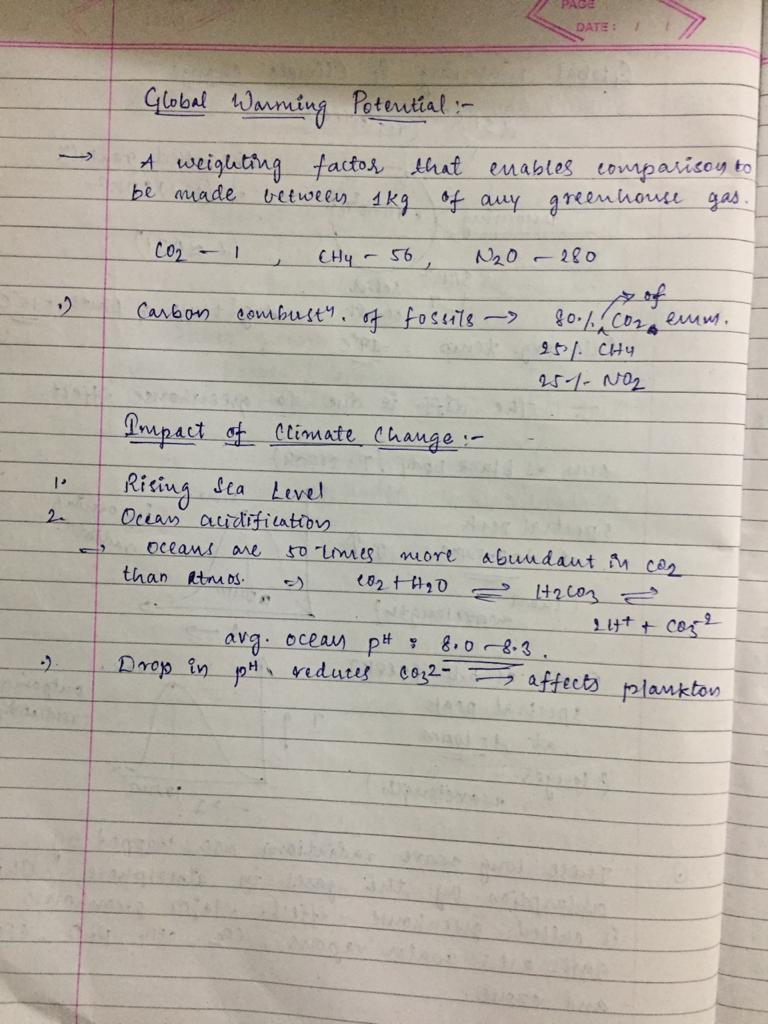 PAGE
DATE: / /
Global Warming Potential :-
→ A weighting factor that enables comparison to
be made between 1kg of any greenhouse gas.
CO2 - 1 , CH4 - 56, N2O - 280
Carbon combustn. of fossils → 80% of CO2 emm.
25% CH4
25% NO2
Impact of Climate Change :-
1. Rising Sea Level
2. Ocean acidification
→ Oceans are 50 times more abundant in CO2
than atmos. ⇒ CO2 + H2O ⇌ H2CO3 ⇌
2H+ + CO3-2
avg. ocean pH : 8.0 - 8.3.
Drop in pH, reduces CO3 2- → affects plankton